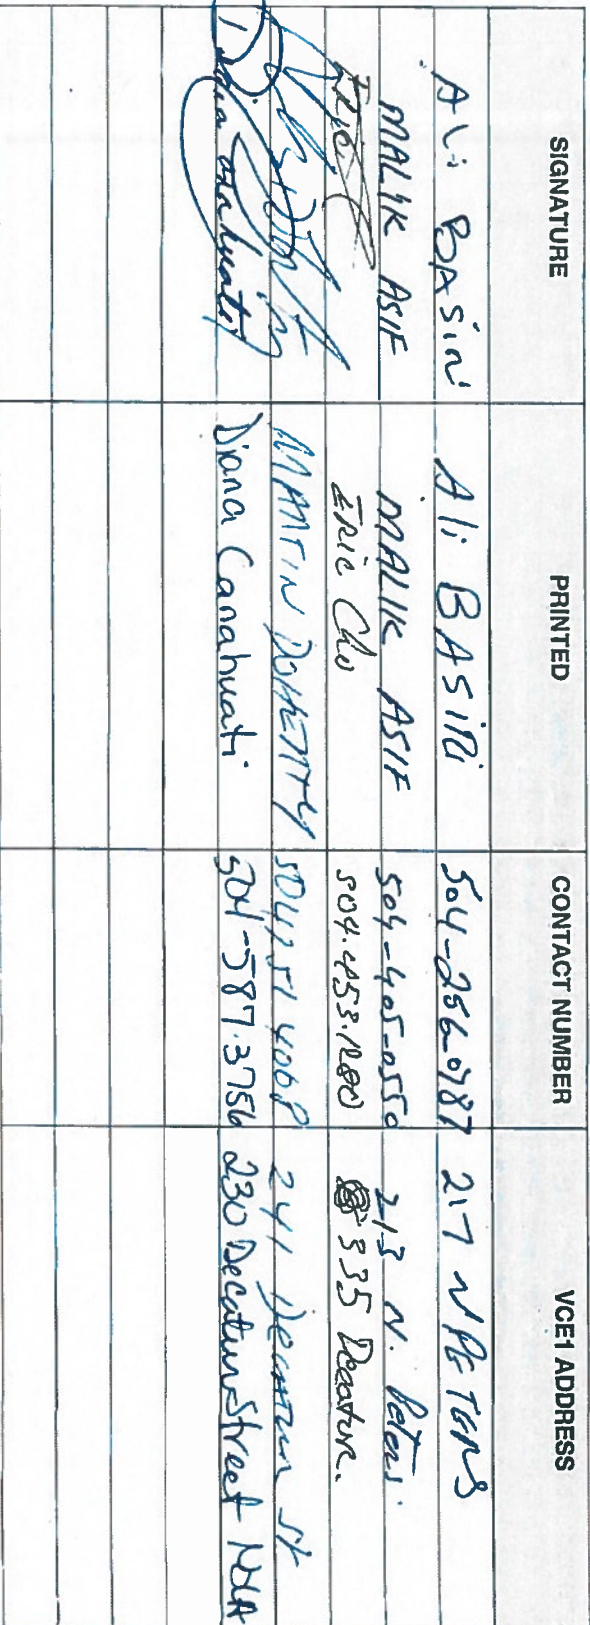 SIGNATURE PRINTED CONTACT NUMBER VCE1 ADDRESS
Ali BASiri Ali BASIRi 504-256-0787 217 N PETERS
MALIK ASIF MALIK ASIF 504-405-0550 213 N. Peters.
ERic Eric Cho 504.453.1280 335 Decatur.
MARTIN DOHERTY 504 251 4068 241 Decatur st
Diana Canahuati Diana Canahuati 504-587-3756 230 Decatur Street NOLA